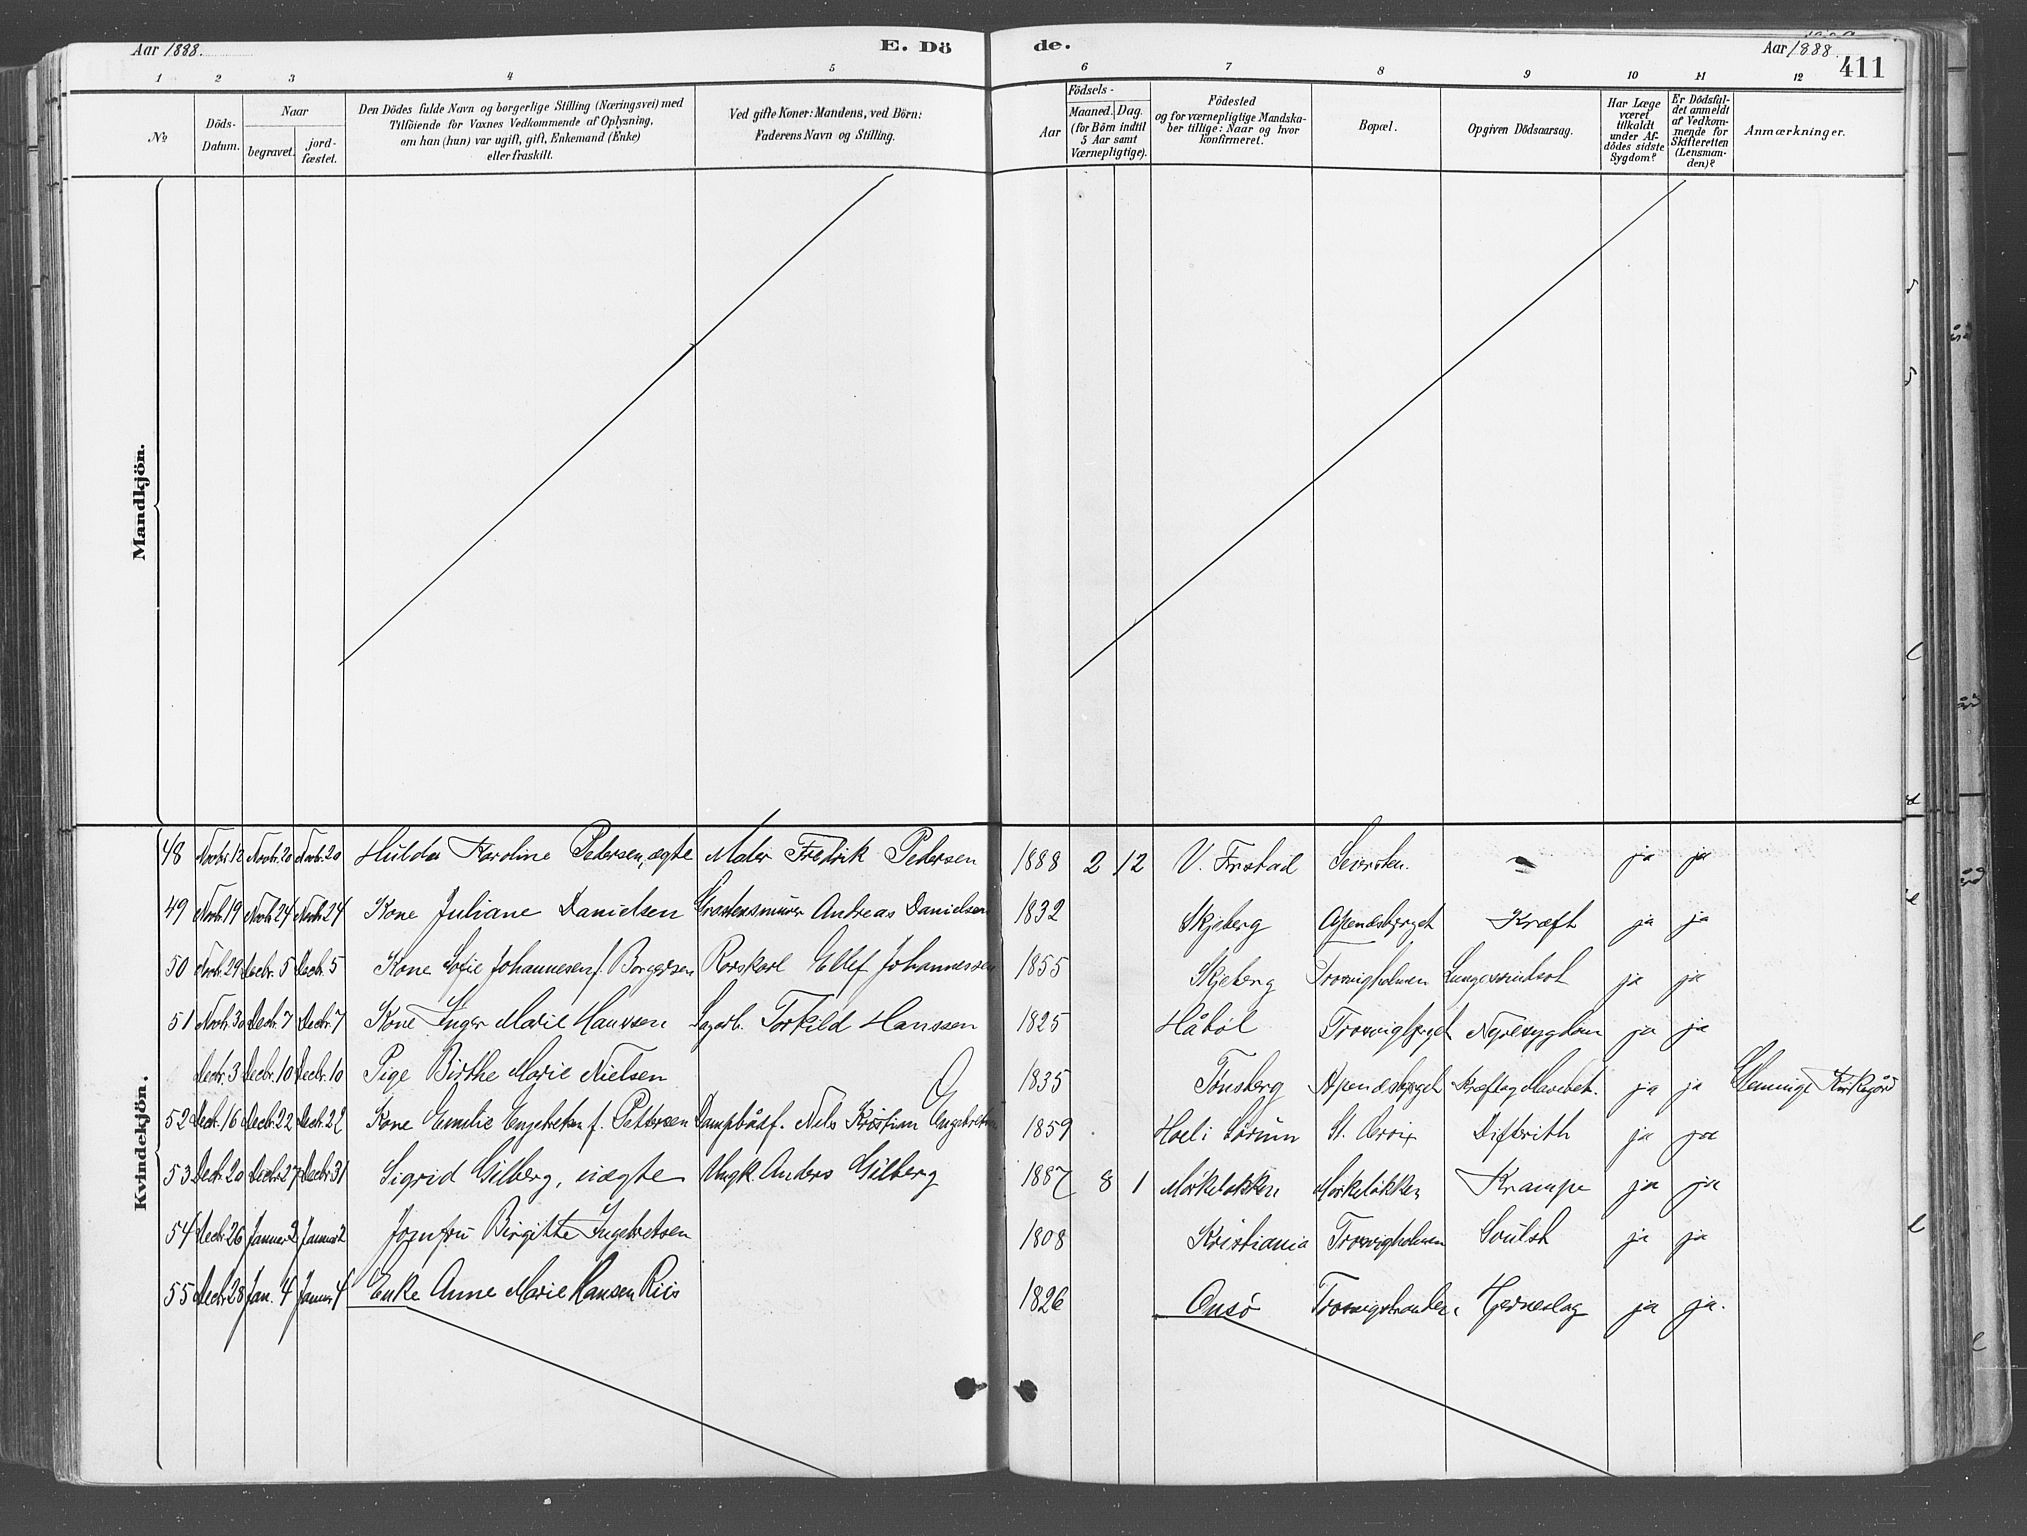 Aar 1888. E. Dö de. Aar 1888 411
1 2 3 4 5 6 7 8 9 10 11 12
№
Döds-Datum.
Naar
begravet.
jord-fæstet.
Den Dödes fulde Navn og borgerlige Stilling (Næringsvei) med
Tilföiende for Voxnes Vedkommende af Oplysning,
om han (hun) var ugift, gift, Enkemand (Enke)
eller fraskilt.
Ved gifte Koner: Mandens, ved Börn:
Faderens Navn og Stilling.
Födsels-
Aar
Maaned. Dag.
(for Börn indtil
5 Aar samt
Værnepligtige).
Födested
og for værnepligtige Mandska-
ber tillige: Naar og hvor
konfirmeret.
Bopæl.
Opgiven Dödsaarsag.
Har Læge
været
tilkaldt
under Af-
dödes sidste
Sygdom?
Er Dödsfal-
det anmeldt
af Vedkom-
mende for
Skifteretten
(Lensman-
den)?
Anmærkninger.
Mandkjön.
Kvindekjön.
48 Novbr. 12 Novbr. 20 Novbr. 20 Hulda Karoline Pedersen, ægte Maler Fredrik Pedersen 1888 2 12 V. Fristad Seiersten. ja ja
49 Novbr. 19 Novbr. 24 Novbr. 24 Kone Juliane Danielsen Graastensmurer Andreas Danielsen 1832 Skjeberg Apenæsbjerget Kræft ja ja
50 Novbr. 29 Decbr. 5 Decbr. 5 Kone Sofie Johannesen f. Borgersen Rorskarl Ellef Johannessen 1855 Skjeberg Trosvigholmen Lungesvindsot ja ja
51 Novbr. 30 Decbr. 7 Decbr. 7 Kone Inger Marie Hanssen Sagarb. Torkild Hanssen 1825 Håböl Trosvigbjerget Nyresygdom ja ja
Decbr. 3 Decbr. 10 Decbr. 10 Pige Birthe Marie Nielsen 1835 Tönsberg Apenæsbjerget Kræft og Mavebet. ja ja Glemminge Kirkegård
52 Decbr. 16 Decbr. 22 Decbr. 22 Kone Emilie Engebretsen f. Pettersen Dampbådf. Nils Kristian Engebretsen 1859 Hoel i Sörum St. Croix Difterith ja ja
53 Decbr. 20 Decbr. 27 Decbr. 31 Sigrid Gilberg, uægte Ungk. Anders Gilberg 1887 8 1 Mörkelökken Mörkelökken Krampe ja ja
54 Decbr. 26 Januar 2 Januar 2 Jomfru Birgitte Ingebretsen 1808 Kristiania Trosvigholmen Soulst ja ja
55 Decbr. 28 Jan. 4 Januar 4 Enke Anne Marie Hansen Riis 1826 Onsö Trosvigstranden. Hjerneslag ja ja.